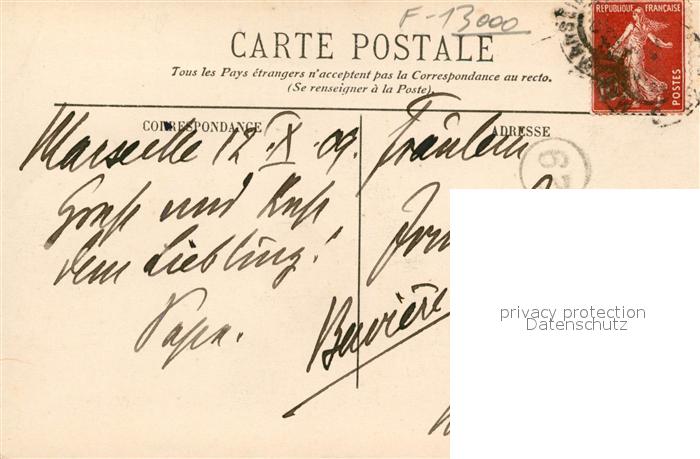 F-13000
CARTE POSTALE
Tous les Pays étrangers n'acceptent pas la Correspondance au recto.
(Se renseigner à la Poste).
REPUBLIQUE FRANÇAISE
POSTES
CORRESPONDANCE
ADRESSE
Marseille 12.X.09.
Gruß und Kuß
dem Liebling!
Papa.
Fräulein
Bavière
privacy protection
Datenschutz